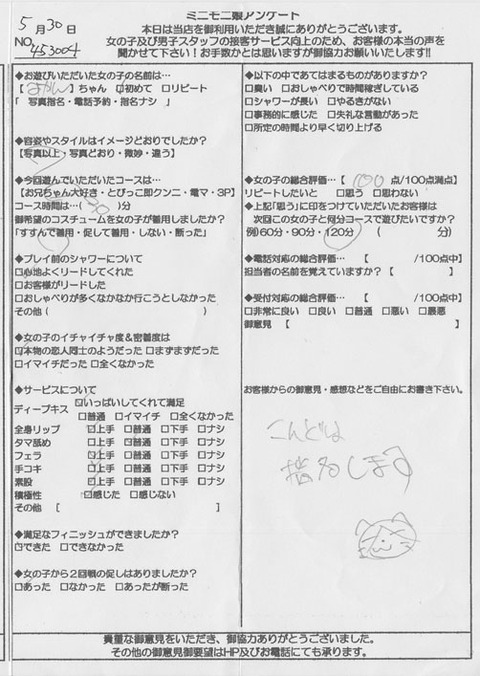 ミニモニ娘アンケート
5月30日
NO. 453004
本日は当店を御利用いただき誠にありがとうございます。
女の子及び男子スタッフの接客サービス向上のため、お客様の本当の声を
聞かせて下さい！お手数かとは思いますが御協力お願いいたします!!
◆お遊びいただいた女の子の名前は…
【 】ちゃん ☑初めて □リピート
「 写真指名・電話予約・指名ナシ 」
◆容姿やスタイルはイメージどおりでしたか？
【写真以上・写真どおり・微妙・違う】
◆今回遊んでいただいたコースは…
【お兄ちゃん大好き・とびっこ即クンニ・電マ・3P】
コース時間は…( 30 )分
御希望のコスチュームを女の子が着用しましたか？
「すすんで着用・促して着用・しない・断った」
◆プレイ前のシャワーについて
□心地よくリードしてくれた
□お客様がリードした
□おしゃべりが多くなかなか行こうとしなかった
その他( )
◆女の子のイチャイチャ度＆密着度は
☑本物の恋人同士のようだった □まずまずだった
□イマイチだった □全くなかった
◆サービスについて
ディープキス ☑いっぱいしてくれて満足
□普通 □イマイチ □全くなかった
全身リップ □上手 □普通 □下手 □ナシ
タマ舐め □上手 □普通 □下手 □ナシ
フェラ □上手 □普通 □下手 □ナシ
手コキ □上手 □普通 □下手 □ナシ
素股 □上手 □普通 □下手 □ナシ
積極性 ☑感じた □感じない
その他 [ ]
◆満足なフィニッシュができましたか？
☑できた □できなかった
◆女の子から２回戦の促しはありましたか？
□あった □なかった □あったが断った
◆以下の中であてはまるものがありますか？
□臭い □おしゃべりで時間稼ぎしている
□シャワーが長い □やるきがない
□事務的に感じた □失礼な言動があった
□所定の時間より早く切り上げる
◆女の子の総合評価…【 100 点/100点満点】
リピートしたいと □思う □思わない
◆上記「思う」に印をつけていただいたお客様は
次回この女の子と何分コースで遊びたいですか？
例)60分・90分・120分 ( 分)
◆電話対応の総合評価…【 /100点中】
担当者の名前を覚えていますか？【 】
◆受付対応の総合評価…【 /100点中】
□非常に良い □良い □普通 □悪い □最悪
御意見 【 】
お客様からの御意見・感想などをご自由にお書き下さい。
こんどは
指名します
貴重な御意見をいただき、御協力ありがとうございました。
その他の御意見御要望はHP及びお電話にても承ります。